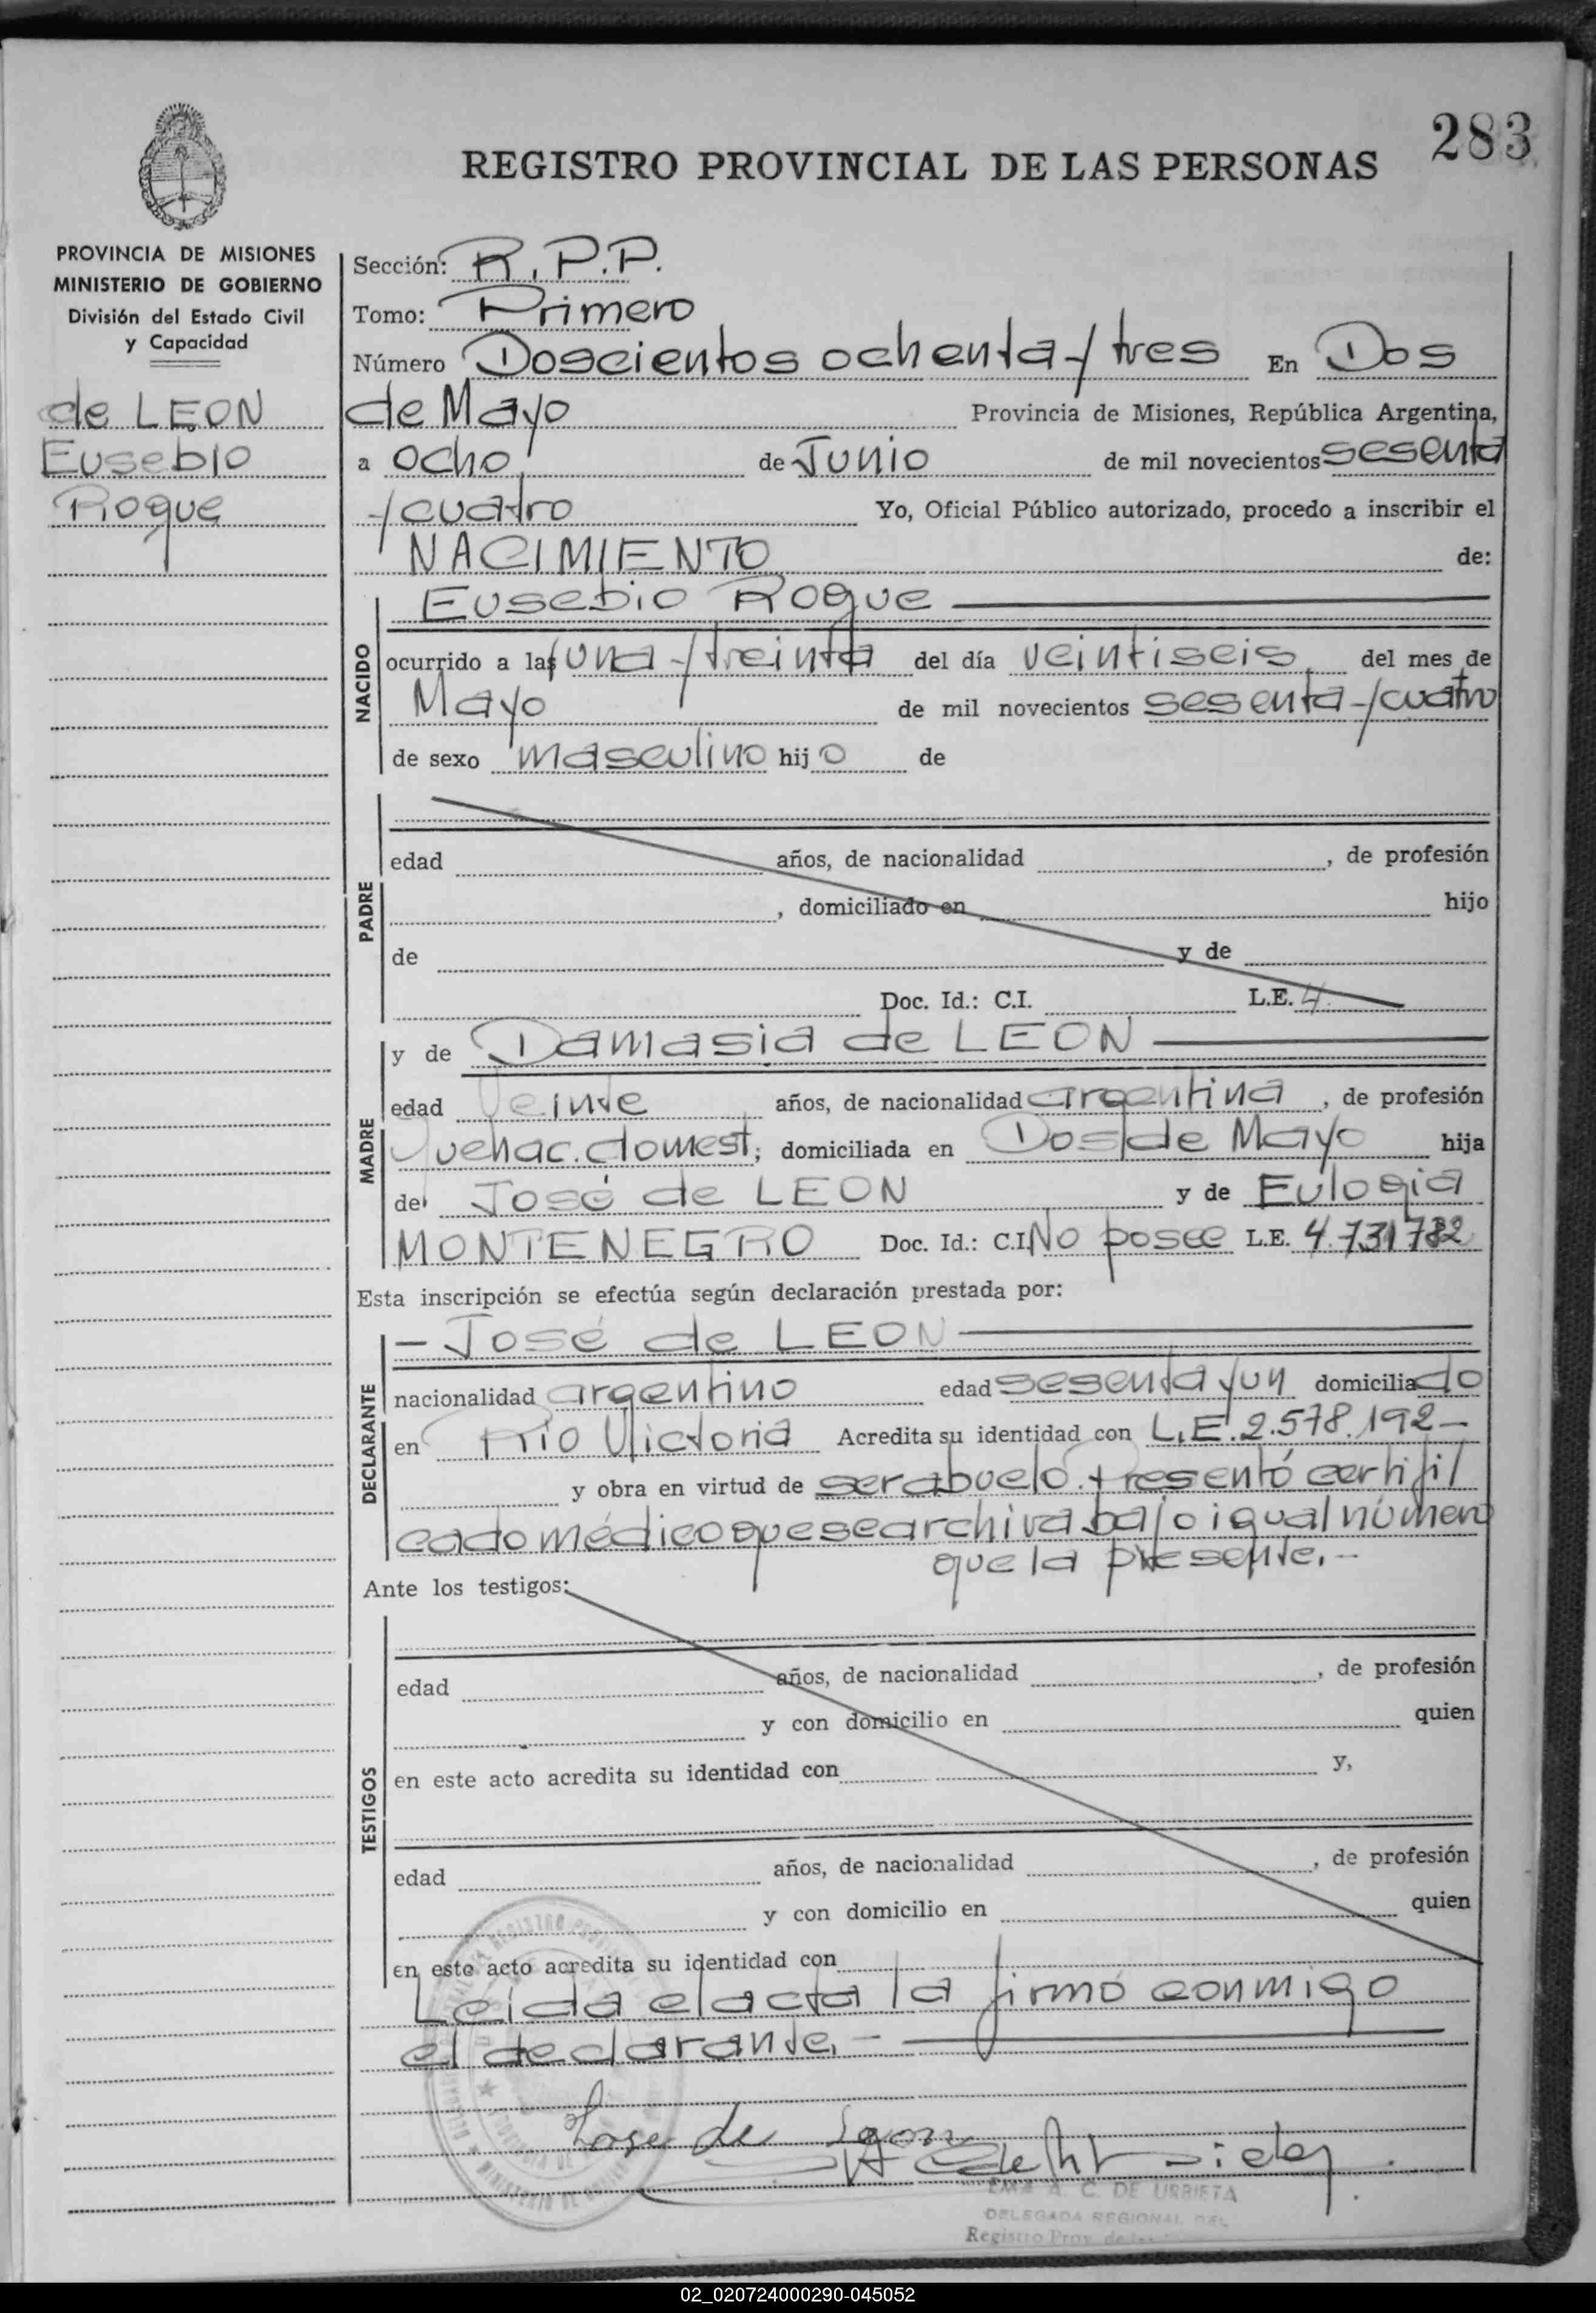 283
REGISTRO PROVINCIAL DE LAS PERSONAS
PROVINCIA DE MISIONES
MINISTERIO DE GOBIERNO
División del Estado Civil
y Capacidad
de LEON
Eusebio
Roque
Sección: R.P.P.
Tomo: Primero
Número Doscientos ochenta y tres En Dos
de Mayo Provincia de Misiones, República Argentina,
a ocho de Junio de mil novecientos sesenta
y cuatro Yo, Oficial Público autorizado, procedo a inscribir el
NACIMIENTO de:
NACIDO
Eusebio Roque
ocurrido a las una y treinta del día veintiseis del mes de
Mayo de mil novecientos sesenta y cuatro
de sexo masculino hijo de
PADRE
edad años, de nacionalidad , de profesión
, domiciliado en hijo
de y de
Doc. Id.: C.I. L.E. 4
MADRE
y de Damasia de LEON
edad Veinte años, de nacionalidad argentina, de profesión
quehac. domest; domiciliada en Dos de Mayo hija
de José de LEON y de Eulogia
MONTENEGRO Doc. Id.: C.I. No posee L.E. 4.731.782
Esta inscripción se efectúa según declaración prestada por:
DECLARANTE
- José de LEON
nacionalidad argentino edad sesenta y un domiciliado
en Río Victoria Acredita su identidad con L.E. 2.578.192-
y obra en virtud de ser abuelo. Presentó certifi/
cado médico que se archiva bajo igual número
que la presente.-
Ante los testigos:
TESTIGOS
edad años, de nacionalidad , de profesión
y con domicilio en quien
en este acto acredita su identidad con y,
edad años, de nacionalidad , de profesión
y con domicilio en quien
en este acto acredita su identidad con
Leída el acta la firmó conmigo
el declarante.-
Jose de Leon
EMA A. C. DE URRIETA
DELEGADA REGIONAL DEL
Registro Prov. de las
02_020724000290-045052